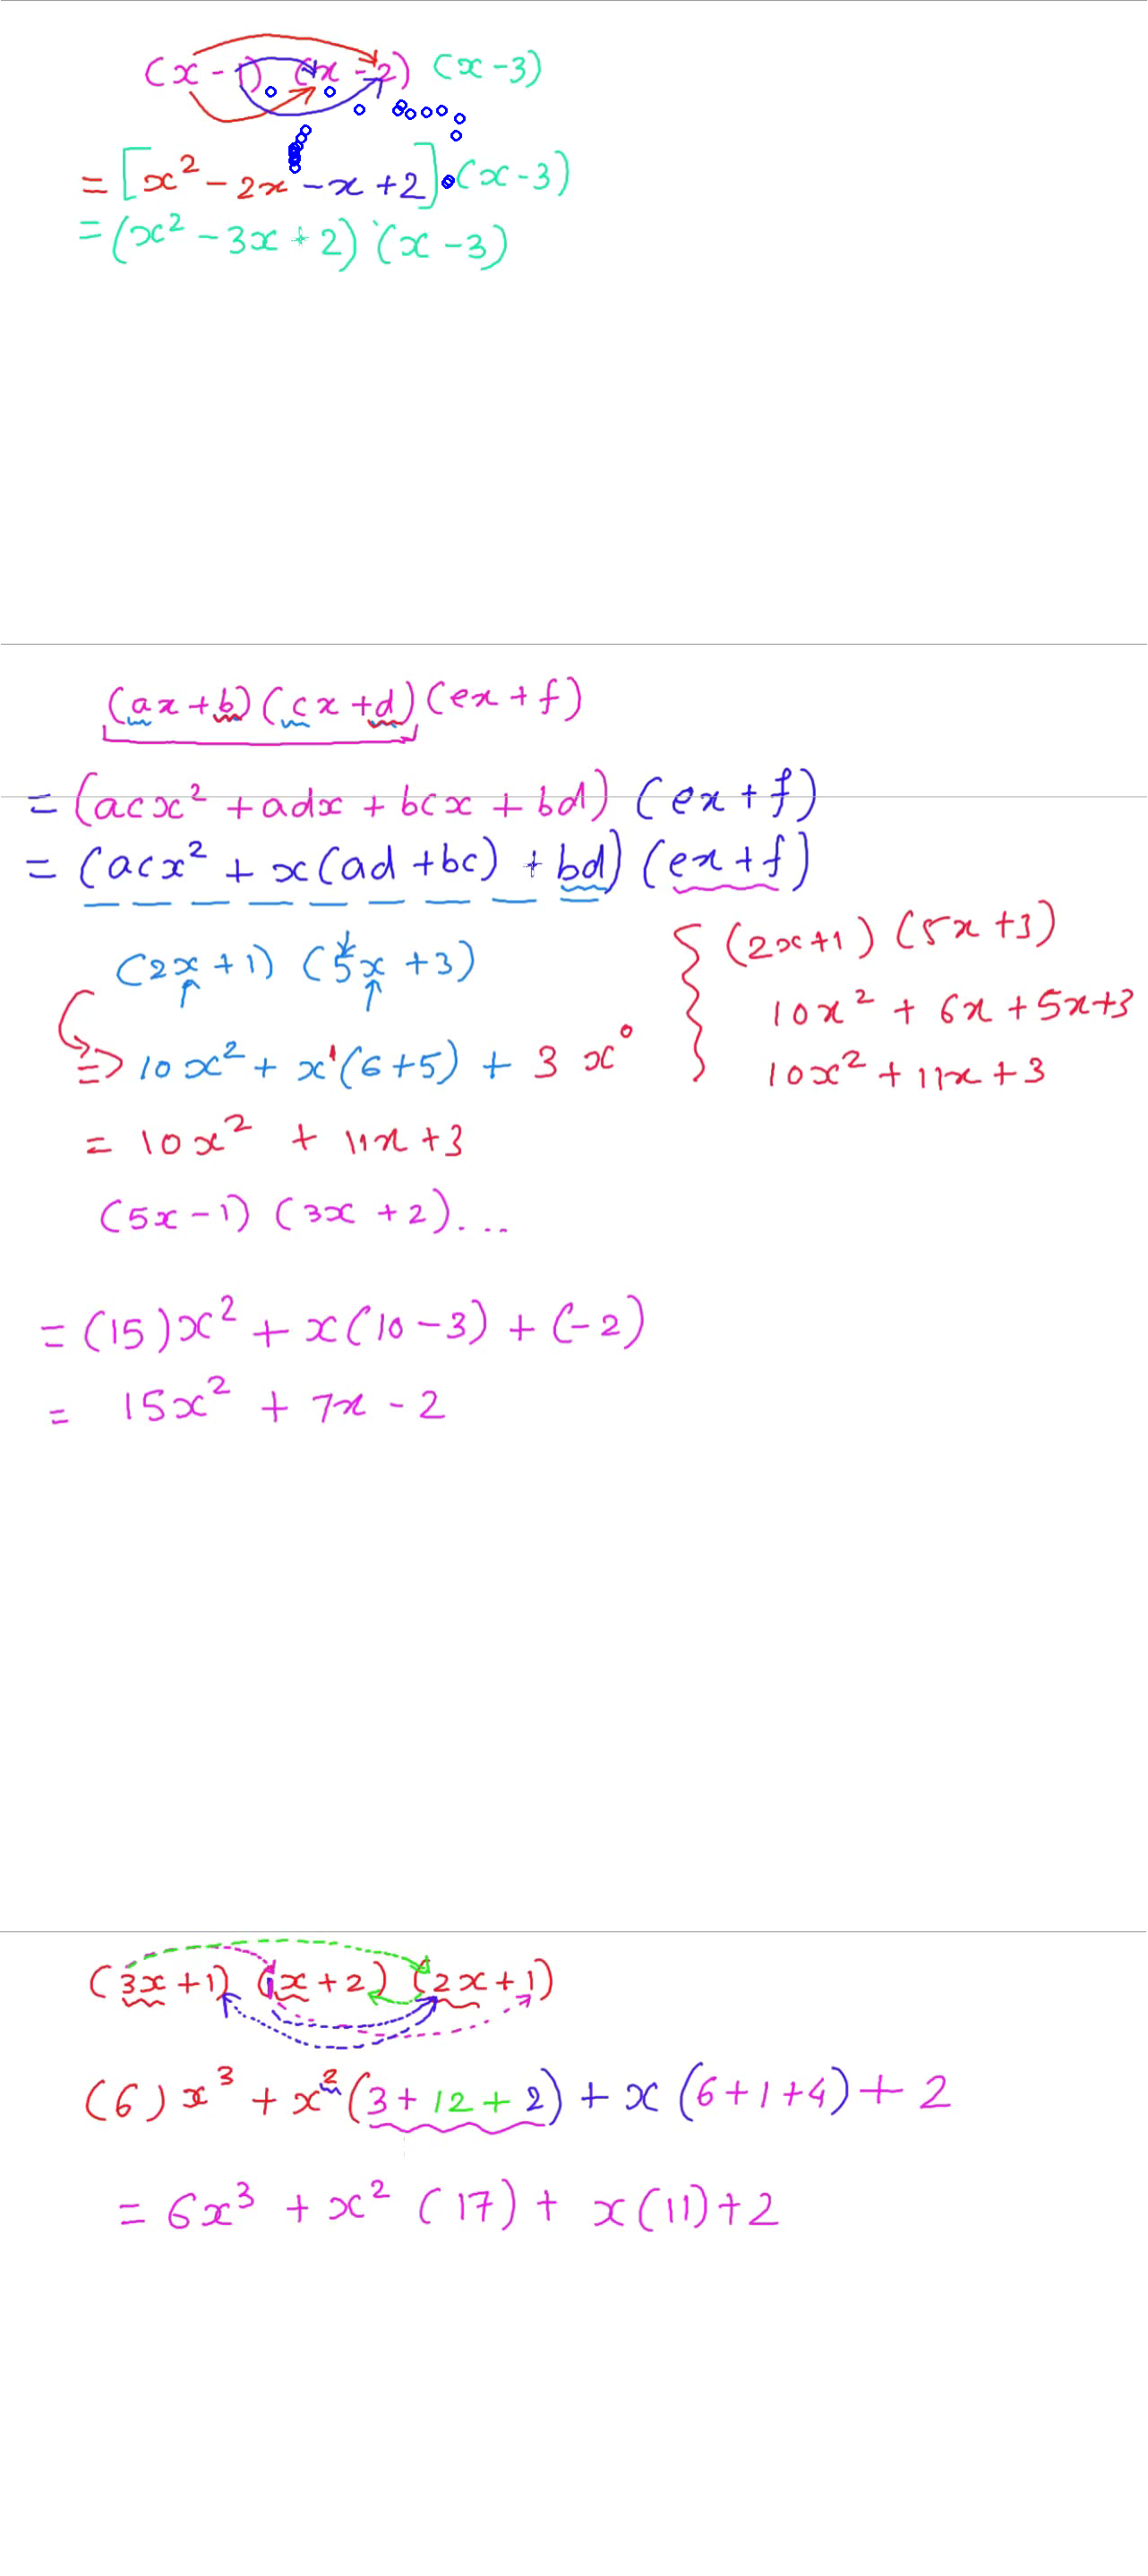 (x - 1) (x - 2) (x - 3)
= [x² - 2x - x + 2] . (x - 3)
= (x² - 3x + 2) (x - 3)
(ax + b) (cx + d) (ex + f)
= (acx² + adx + bcx + bd) (ex + f)
= (acx² + x(ad + bc) + bd) (ex + f)
(2x + 1) (5x + 3)
=> 10x² + x¹(6 + 5) + 3 x⁰
= 10x² + 11x + 3
{ (2x + 1) (5x + 3)
10x² + 6x + 5x + 3
10x² + 11x + 3
(5x - 1) (3x + 2) ...
= (15)x² + x(10 - 3) + (-2)
= 15x² + 7x - 2
(3x + 1) (x + 2) (2x + 1)
(6) x³ + x² (3 + 12 + 2) + x (6 + 1 + 4) + 2
= 6x³ + x² (17) + x(11) + 2